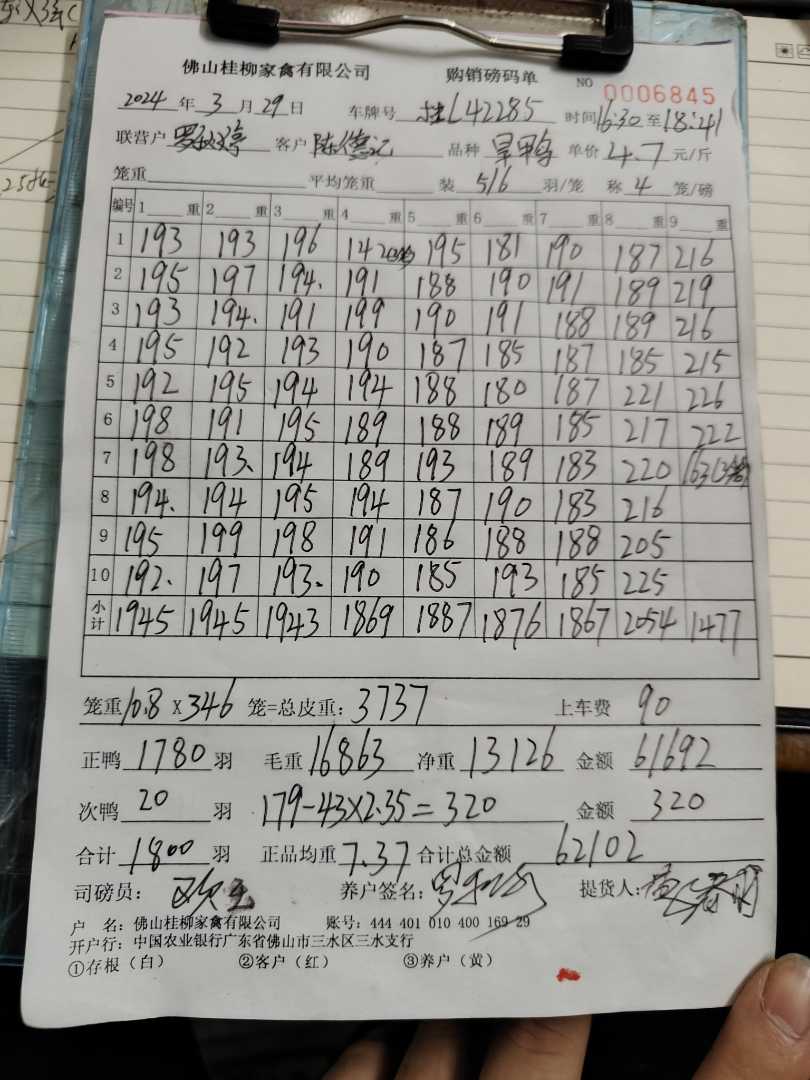 佛山桂柳家禽有限公司 购销磅码单 NO 0006845
2024年3月29日 车牌号 桂L42285 时间16:30至18:41
联营户 客户 陈德记 品种 旱鸭 单价 4.7 元/斤
笼重 平均笼重 装 5/6 羽/笼 称 4 笼/磅
编号 1 重 2 重 3 重 4 重 5 重 6 重 7 重 8 重 9 重
1 193 193 196 142 195 181 190 187 216
2 195 197 194. 191 188 190 191 189 219
3 193 194. 191 199 190 191 188 189 216
4 195 192 193 190 187 185 187 185 215
5 192 195 194 194 188 180 187 221 226
6 198 191 195 189 188 189 185 217 222
7 198 193. 194 189 193 189 183 220 163(3笼)
8 194. 194 195 194 187 190 183 216
9 195 199 198 191 186 188 188 205
10 192. 197 193. 190 185 193 185 225
小计 1945 1945 1943 1869 1887 1876 1867 2054 1477
笼重10.8×346笼=总皮重：3737 上车费 90
正鸭 1780 羽 毛重 16863 净重 13126 金额 61692
次鸭 20 羽 179-43×2.35=320 金额 320
合计 1800 羽 正品均重 7.37 合计总金额 62102
司磅员： 养户签名： 提货人：
户 名：佛山桂柳家禽有限公司 账号：444 401 010 400 169 29
开户行：中国农业银行广东省佛山市三水区三水支行
①存根（白） ②客户（红） ③养户（黄）